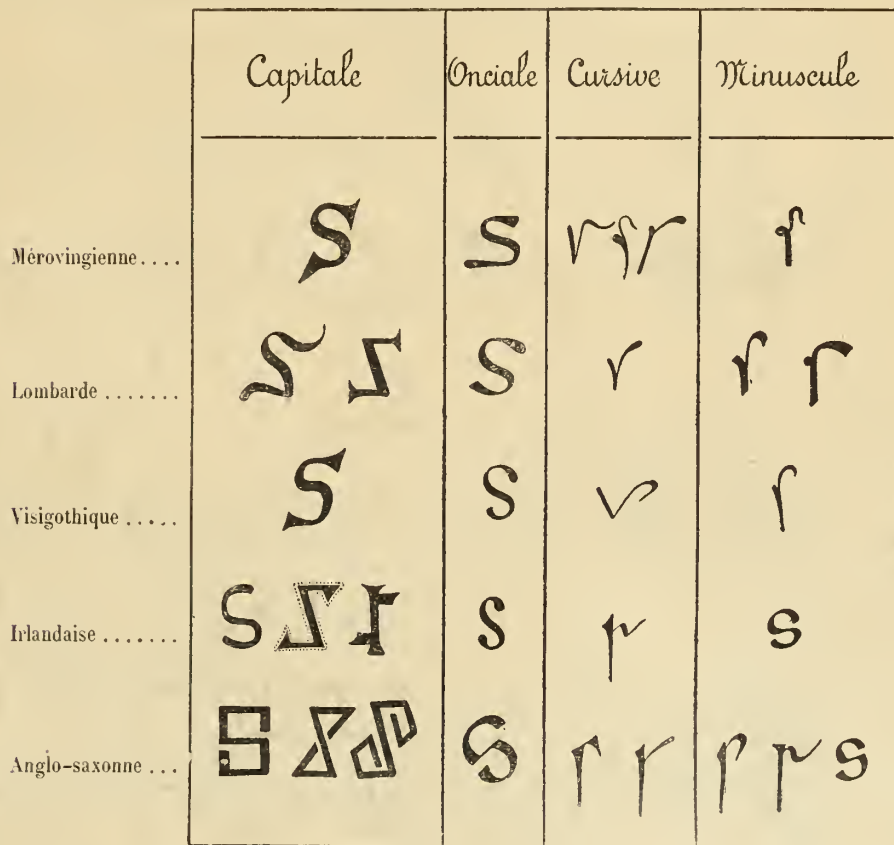 Capitale Onciale Cursive Minuscule
Mérovingienne.... S S ſſſ ſ
Lombarde ....... S S S ſ ſ ſ
Visigothique ..... S S ſ ſ
Irlandaise ....... S S S S ſ s
Anglo-saxonne ... S S S S ſ ſ ſ ſ s